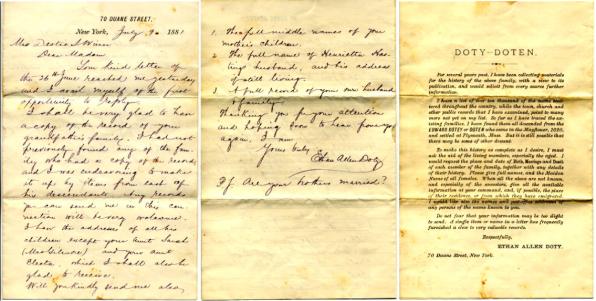 70 DUANE STREET.
New York, July 9 1881
Mrs Dealer
Dear Madam
Your kind letter of
the 26th June reached me yesterday
and I avail myself of the first
opportunity to reply.
I shall be very glad to have
a copy of the record of your
grandfathers family. I had not
previously found any of the fam-
ily who had a copy of the record
and I was endeavoring to make
it up by items from each of
his descendants. Any records
you can send me in this con-
nection will be very welcome.
I have the addresses of all his
children except your Aunt Sarah
(Mrs Gilmore) and your Aunt
Electa which I shall also be
glad to receive.
Will you kindly send me also,
1. The full middle names of your
mothers children.
2. The full name of Henrietta Has-
tings husband, and his address
if still living.
3. A full record of your own husband
& family.
Thanking you for your attention
and hoping soon to hear from you
again, I am
Yours truly
Ethan Allen Doty
P.S. Are your brothers married?
DOTY-DOTEN.
For several years past, I have been collecting materials
for the history of the above family, with a view to its
publication, and would solicit from every source further
information.
I have a list of over ten thousand of the name scat-
tered throughout the country, while the town, church and
other public records that I have examined, point to many
more not yet on my list. So far as I have traced the ex-
isting families, I have found them all descended from the
EDWARD DOTEY or DOTEN who came in the Mayflower, 1620,
and settled at Plymouth, Mass. But it is still possible that
there may be some of other descent.
To make this history as complete as I desire, I must
ask the aid of the living members, especially the aged. I
would request the place and date of Birth, Marriage and Death
of each member of the family, together with any details
of their history. Please give full names, and the Maiden
Name of all females. When all the above are not known,
and especially of the ancestors, give all the available
information at your command, and, if possible, the place
of their residence, or from which they emigrated.
I would like also the names and post-office addresses of
any persons of the name known to you.
Do not fear that your information may be too slight
to send. A single item or name in a letter has frequently
furnished a clue to very valuable records.
Respectfully,
ETHAN ALLEN DOTY.
70 Duane Street, New York.